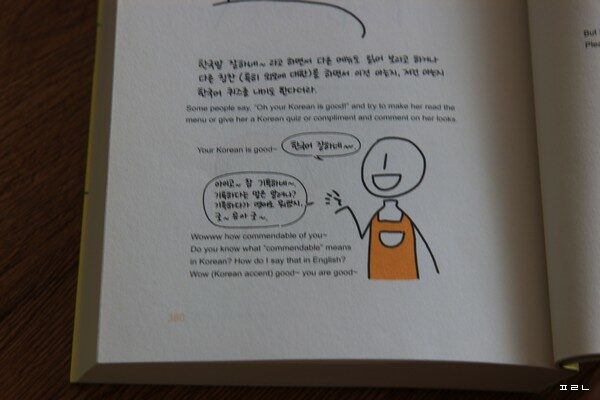 한국말 잘하네~ 라고 하면서 다른 메뉴도 읽어 보라고 하거나
다른 칭찬 (특히 외모에 대한)을 하면서 이건 아는지, 저건 아는지
한국어 퀴즈를 내기도 한다더라.
Some people say, "Oh your Korean is good!" and try to make her read the
menu or give her a Korean quiz or compliment and comment on her looks.
But
Plea
Your Korean is good~
한국어 잘하네~
아이고~ 참 기특하네~.
기특하다는 말은 알려나?
기특하다가 영어로 뭐였지.
굳~ 유아 굳~.
Wowww how commendable of you~
Do you know what "commendable" means
in Korean? How do I say that in English?
Wow (Korean accent) good~ you are good~
380
프르느